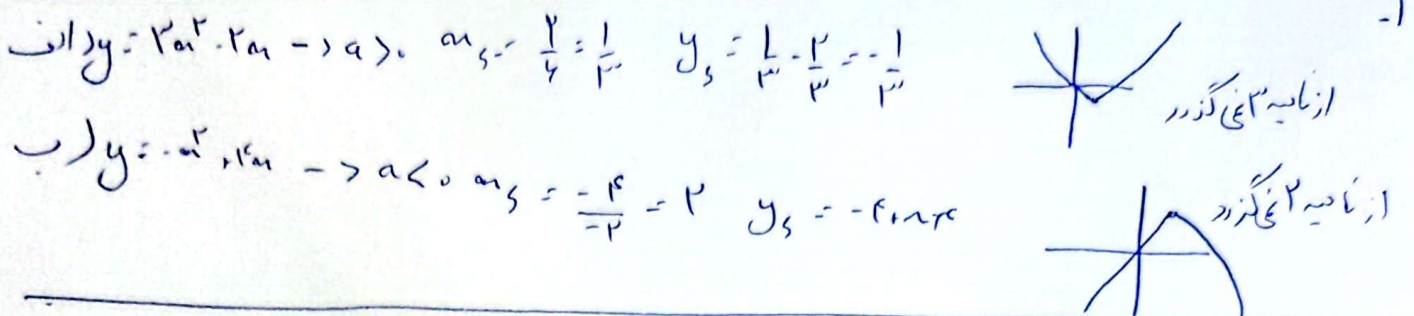 ۱-
الف) y = ۳x² - ۲x -> a > ۰  xₛ = ۲/۶ = ۱/۳  yₛ = ۱/۳ - ۲/۳ = -۱/۳
از ناحیه ۳ نمی گذرد
ب) y = -x² + ۴x -> a < ۰  xₛ = -۴/-۲ = ۲  yₛ = -۴ + ۸ = ۴
از ناحیه ۲ نمی گذرد